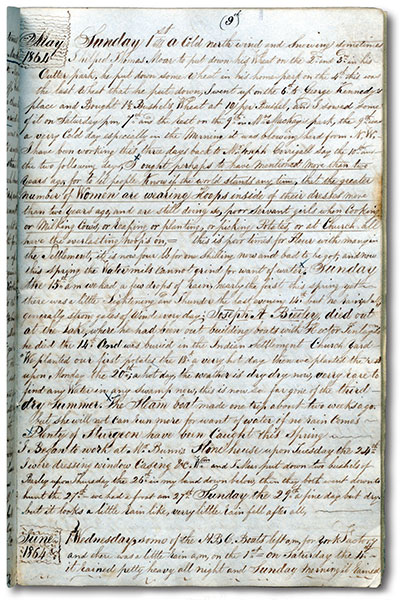 (9)
May 1864
Sunday 1st a Cold north wind and Snowing sometimes
I helped Thomas Moar to put down his Wheat on the 2nd and 3rd in his
Outer park, he put down some Wheat in his home park on the 4th this was
the last Wheat that he put down, I went up on the 6th to George Kennedy's
place and Bought 18 Bushels Wheat at 10/ per Bushel, and I sowed some
of it on Saturday p.m. 7th and the rest on the 9th in Mr Mackay's park, the 9th was
a very Cold day especially in the Morning it was blowing hard from N.W.
I have been working that three days back to Mr Joseph Corrigall day the 10th and
the two following days I ought perhaps to have mentioned More than two
years ago, for to let people know if the world stands any time, that the greater
number of Women are wearing Hoops inside of their dresses more
than two years ago, and are still doing so, poor servant girls when Cooking
or Milking Cows, or reaping or planting, or picking Potatoes, or at Church still
have the everlasting hoops on, = this is poor times for Flour with many in
the Settlement, it is now four lb for one shilling now and bad to be got, and now
this spring the Watermills Cannot grind for want of water. Sunday
the 15th a.m. we had a few drops of rain, nearly the first this spring yet
there was a little Lightning and Thunder the last evening 14th but no rain
generally strong gales of Wind every day; Joseph A Bewley died out
at the Lake, where he had been out building boats with Hector
he died the 14th And was buried in the Indian Settlement Church Yard
We planted our first potatoes the 18th a very hot day then we planted the rest
upon Monday the 20th, a hot day, the weather is dry, dry now, very rare to
find any Water in any Swamp now, this is now so far gone of the third
dry summer. The Steam boat made one trip about two weeks ago
but she will not Can run more for want of water if no rain Comes
Plenty of Sturgeon have been Caught this Spring
I Began to work at Mr Bunn's Stone house upon Tuesday the 24th
I were dressing window Casing &c. Wm and Isaac put down two bushels of
Barley upon Thursday the 26th in my land down below, then they both went down to
hunt the 27th we had a frost a.m. 27th Sunday the 29th a fine day but dry
but it looks a little rain like, very little rain fell after all,
June 1864
1st Wednesday, some of the H.B.C. Boats left a.m. for York Factory
and there was a little rain a.m. on the 1st on Saturday the 4th
it rained pretty heavy all night and Sunday morning it rained